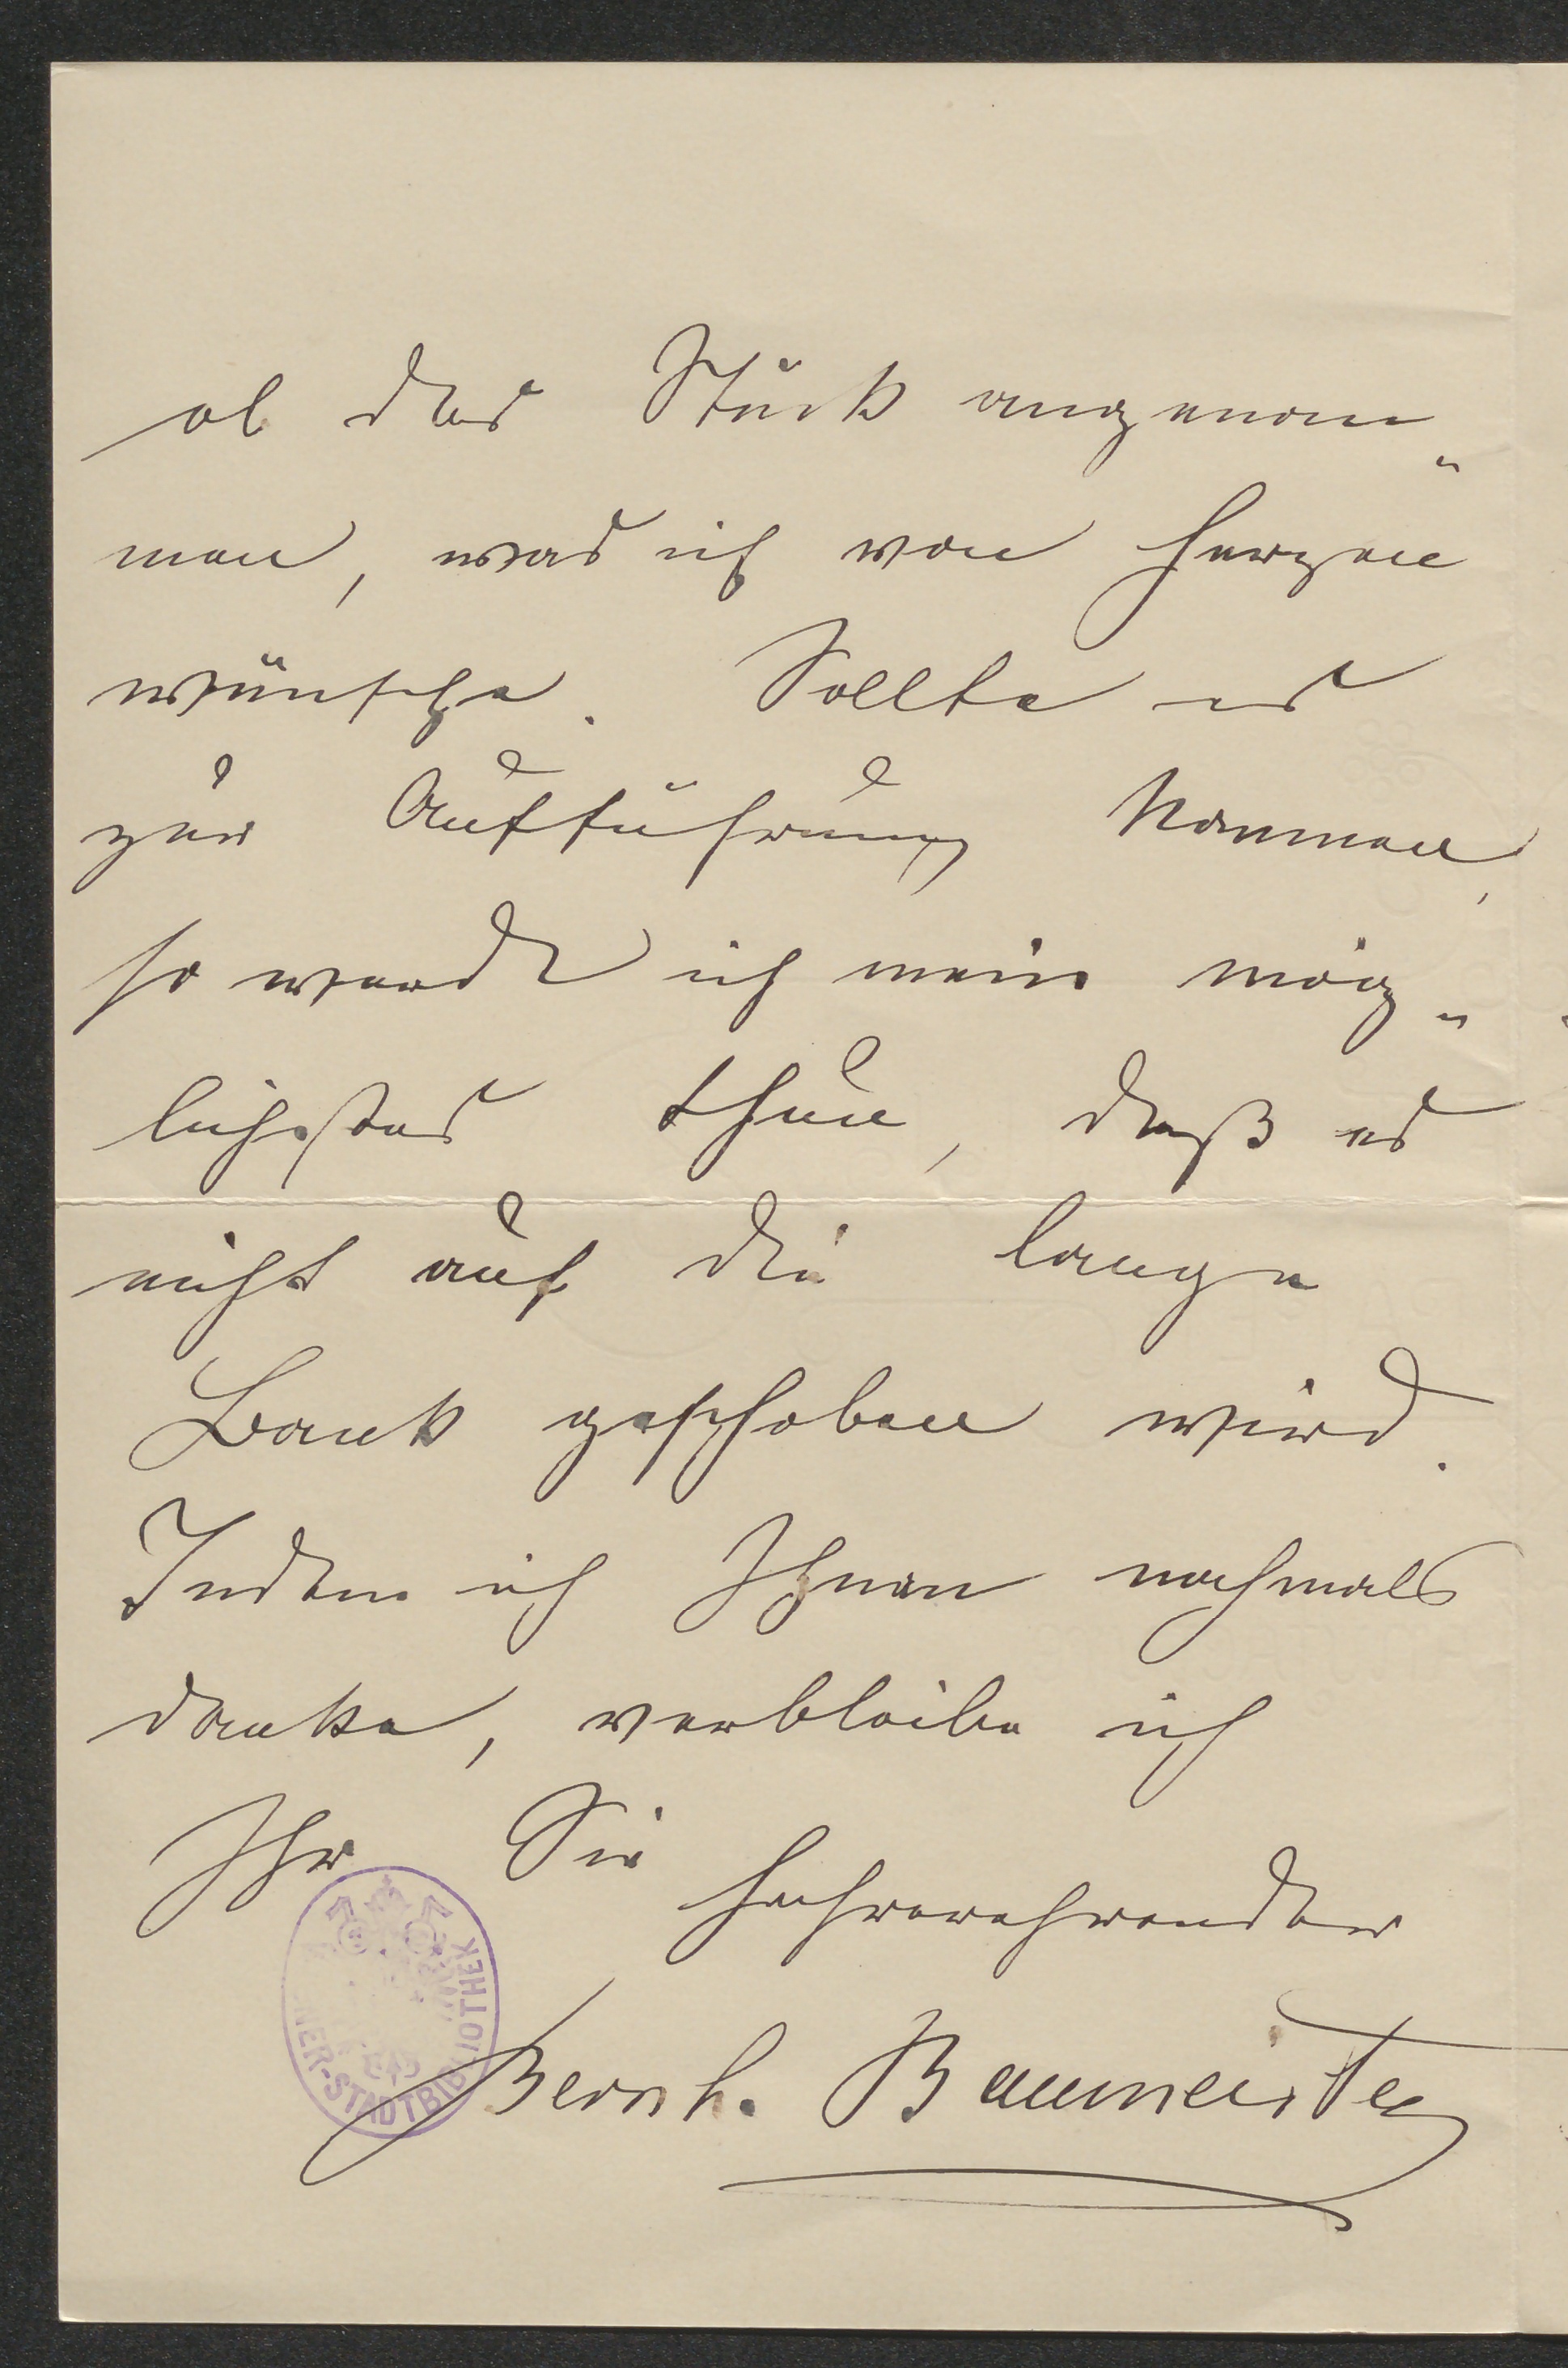 ob das Stück angenom„
men, was ich von Herzen
wünsche. Sollte es
zur Aufführung kommen,
so werde ich mein mög„
lichstes thun, daß es
nicht auf die lange
Bank geschoben wird.
Indem ich Ihnen nochmals
danke, verbleibe ich
Ihr Sie
hochverehrender
Bernh. Baumeister
ER-STADTBIBLIOTHEK